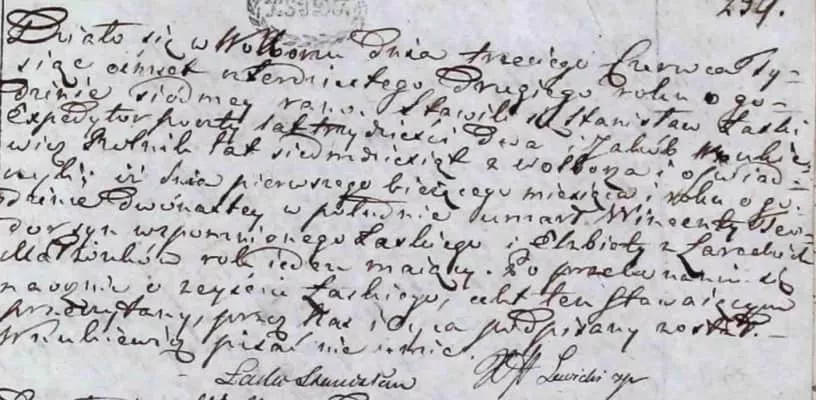 234.
Działo się w Wolborzu dnia trzeciego Czerwca Ty-
siąc ośmset czterdziestego drugiego roku o go-
dzinie siódmey rano. Stawili się Stanisław Łaski
Expedytor poczty lat trzydzieści dwa i Jakób Wnukie-
wicz Rolnik lat siedmdziesiąt z Wolborza i oświad-
czyli; iż dnia pierwszego bieżącego miesiąca i roku o go-
dzinie dwunastey w południe umarł Wincenty Teo-
dor syn wspomnionego Łaskiego i Elżbiety z
Małżonków rok ieden maiący. Po przekonaniu się
naocznie o zeyściu Łaskiego, akt ten Stawaiącym
przeczytany, przez Nas i Oyca podpisany został.
Wnukiewicz pisać nie umie.
Łaski Stanisław